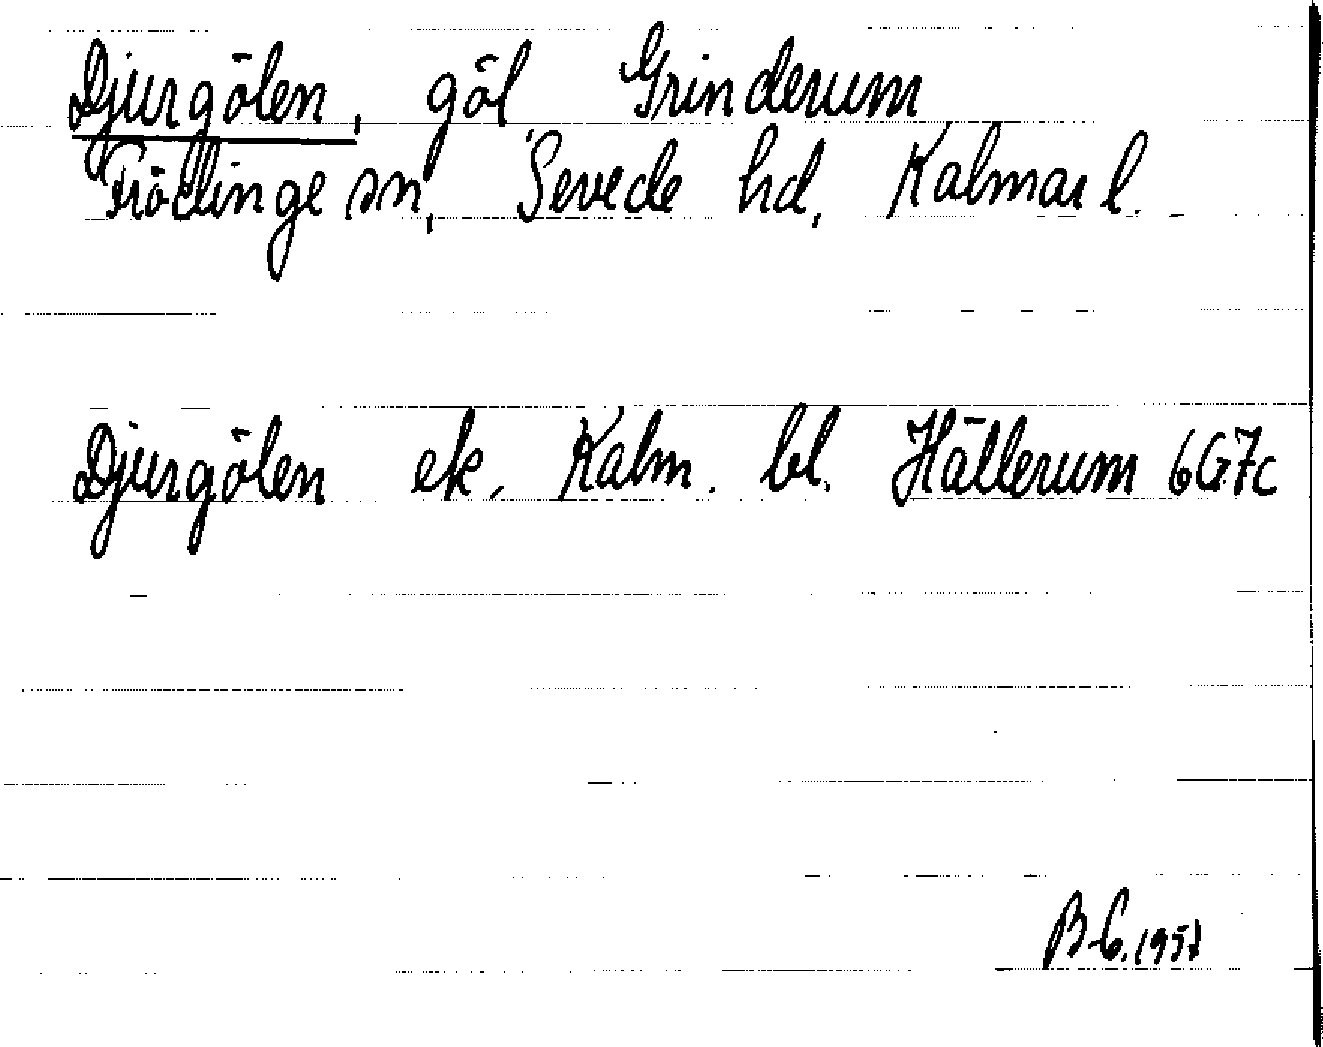 Djurgölen, göl Grinderum
Frödinge sn, Sevede hd, Kalmar l.
Djurgölen ek. Kalm. bl. Hällerum 6G7c
B.C. 1957